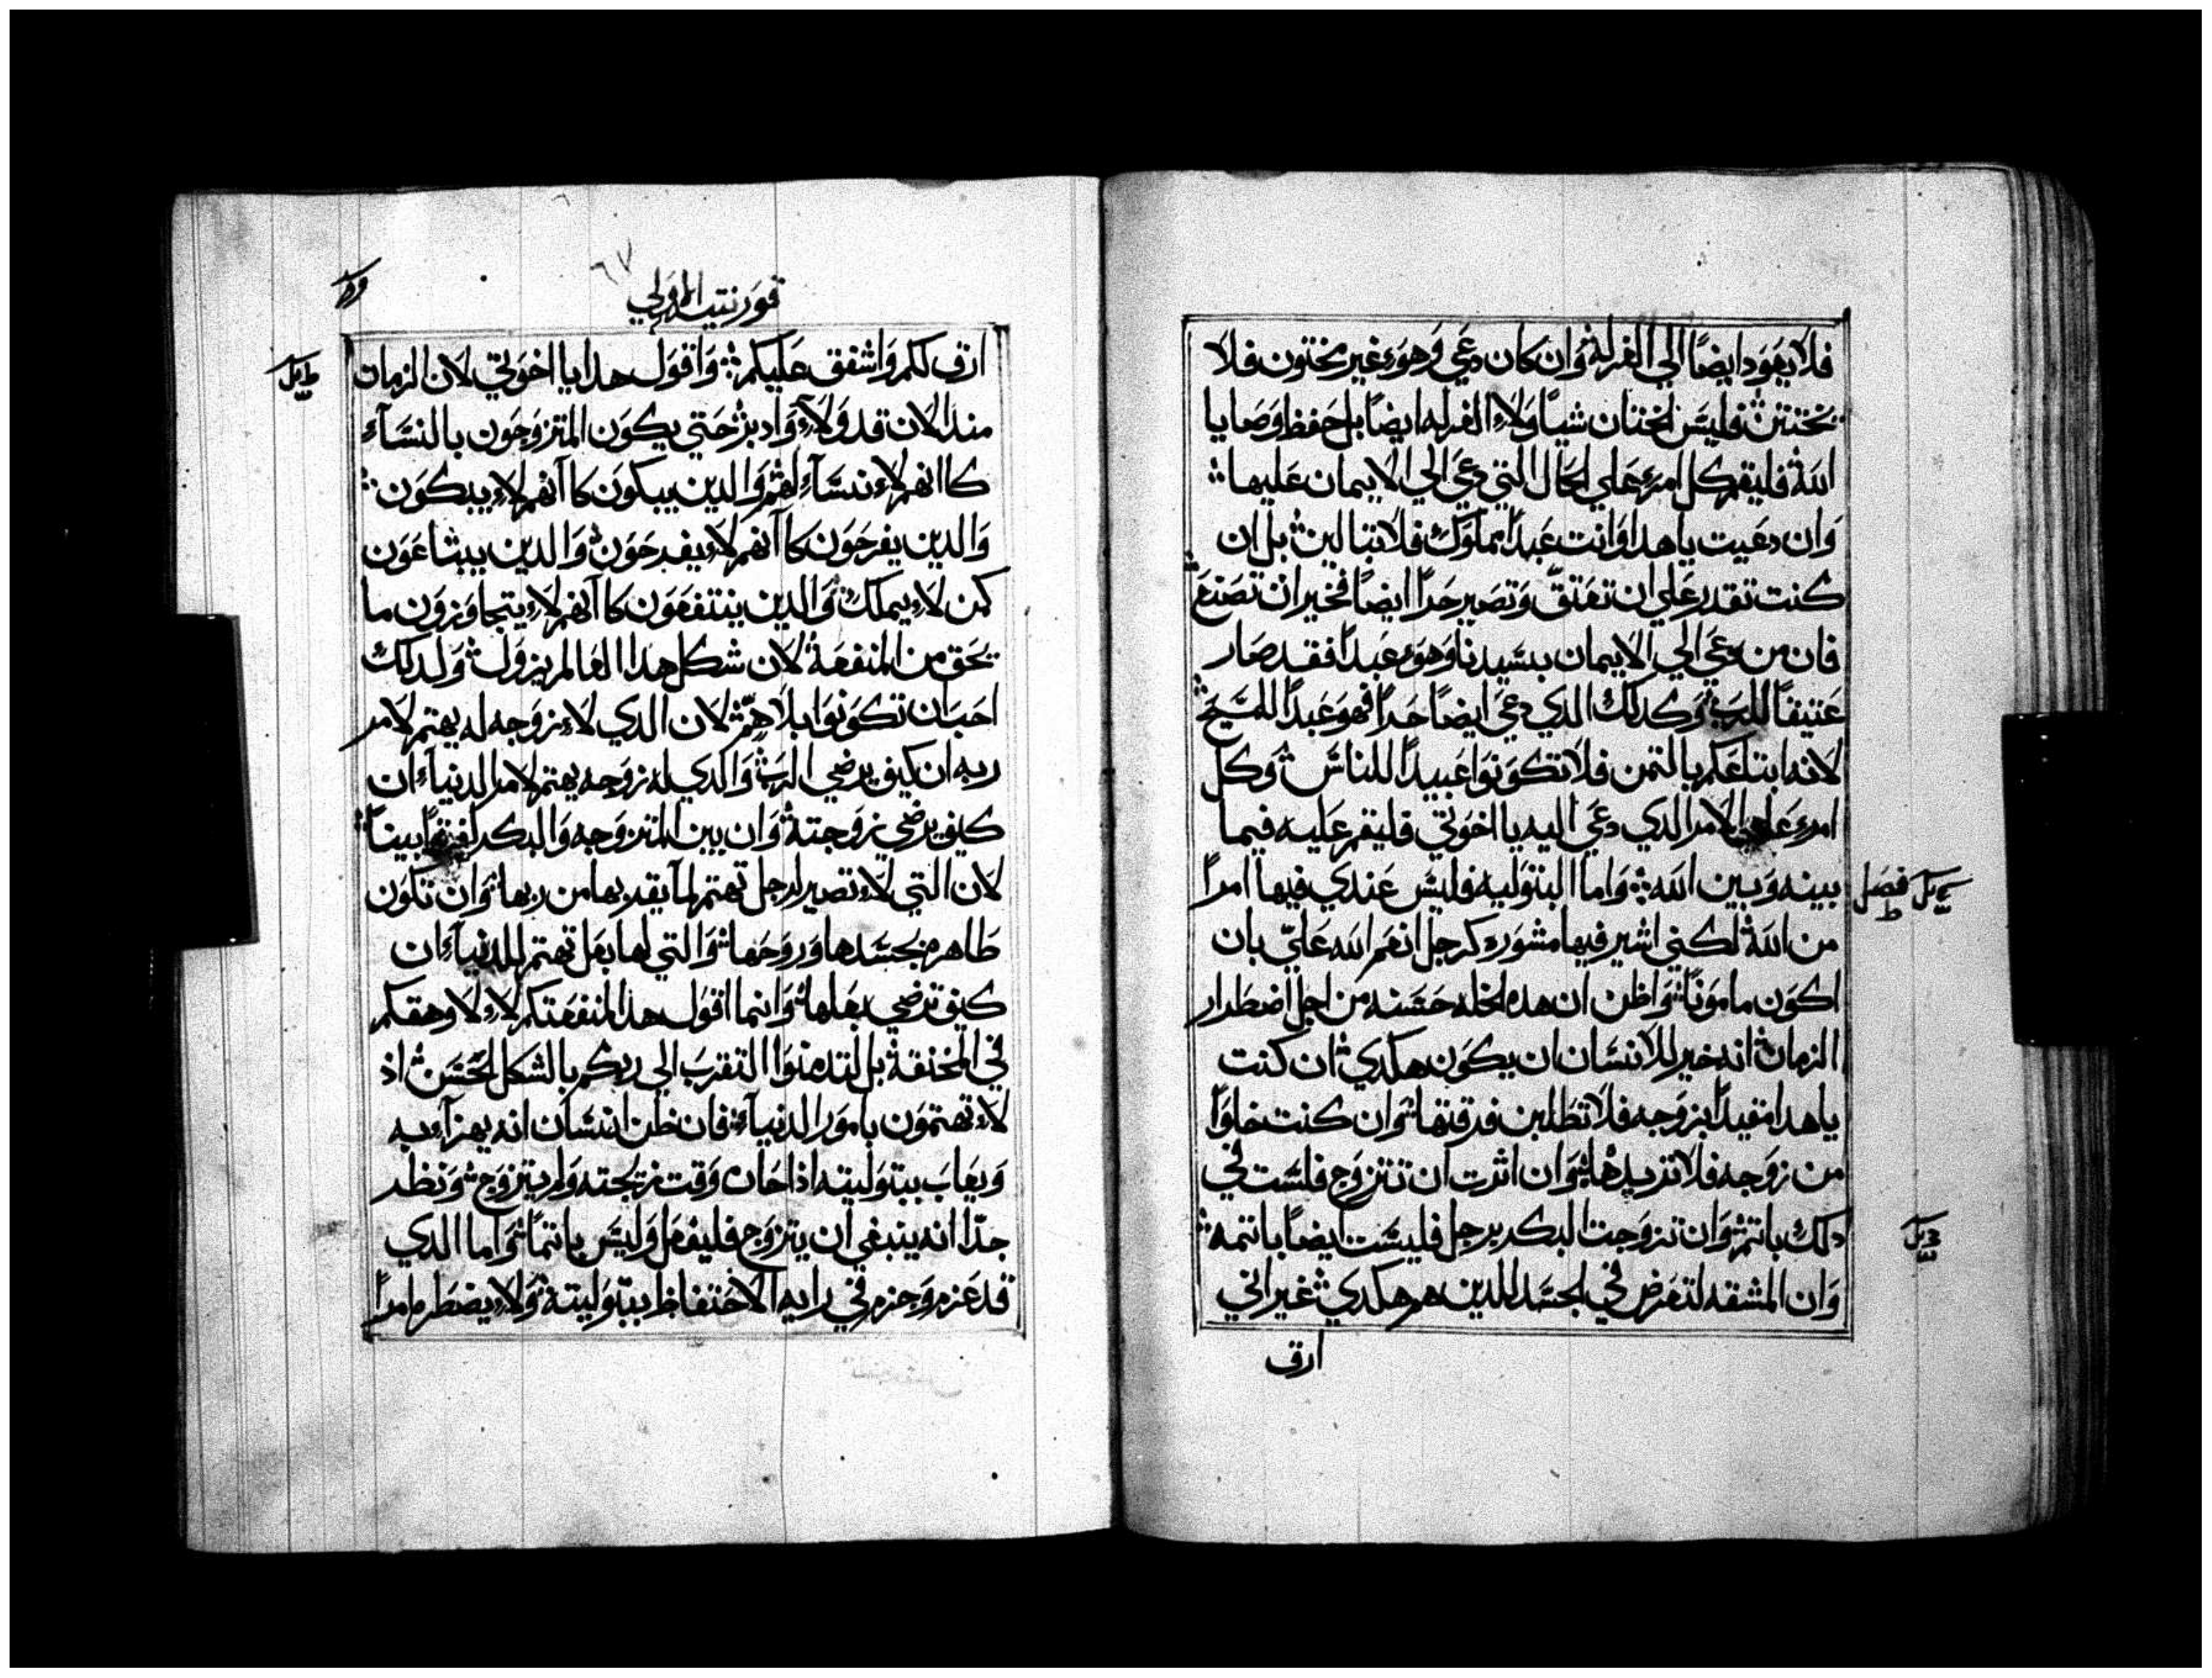 فلا يعود ايضًا الي الغرله وان كان دعي وهو غير مختون فلا
يختتن فليس الختان شيًا ولا الغرله ايضًا بل حفظ وصايا
الله فليقم كل امرء علي الحال التي دعي الي الايمان عليها
وان دعيت يا هدا وانت عبدًا مملوك فلا تبالين بل ان
كنت تقدر علي ان تعتق وتصير حرًا ايضًا فخير ان تصنع
فان من دعي الي الايمان بسيدنا وهو عبدًا فقد صار
عتيقًا للرب وكدلك الدي دعي ايضًا حرًا فهو عبدًا للمسيح
لانه ابتاعكم بالتمن فلا تكونوا عبيدًا للناس وكل
امرء علي الامر الدي دعي اليه يا اخوتي فليقم عليه فيما
بينه وبين الله واما البتوليه فليس عندي فيها امرًا
فصل ط
من الله لكني اشير فيها مشوره كرجل انعم الله عليّ بان
اكون مامونًا واظن ان هده الخله حسنه من اجل اضطرار
الزمان انه خير للانسان ان يكون هكدي ان كنت
يا هدا مقيدًا بزوجه فلا تطلبن فرقتها وان كنت خلوًا
من زوجه فلا تريدها وان اثرت ان تتزوج فلست في
دلك باتم وان تزوجت البكر برجل فليست ايضًا باتمه
وان المشقه لتعرض في الجسد للدين هم هكدي غير اني
ارق
قورنتيه الاولي
٦٧
ارق لكم واشفق عليكم واقول هدا يا اخوتي لان الزمان
مند الان قد ولا وادبر حتي يكون المتزوجون بالنسآء
كاانهم لا نسآء لهم والدين يبكون كاانهم لا يبكون
والدين يفرحون كاانهم لا يفرحون والدين يبتاعون
كمن لا يملك والدين ينتفعون كاانهم لا يتجاوزون ما
يحق من المنفعة لان شكل هدا العالم يزول ولدلك
احب ان تكونوا بلا همّ لان الدي لا زوجه له يهتم لامر
ربه ان كيف يرضي الرب والدي له زوجه يهتم لامر الدنيا ان
كيف يرضي زوجته وان بين المتزوجه والبكر لفرقًا بينًا
لان التي لا تصير لرجل تهتم لما يقربها من ربها وان تكون
طاهره بجسدها وروحها والتي لها بعل تهتم للدنيا ان
كيف ترضي بعلها وانما اقول هدا لمنفعتكم لا لاوهقكم
في المخنقة بل لتدمنوا التقرب الي ربكم بالشكل الحسن اذ
لا تهتمون بامور الدنيا فان ظن انسان انه يهزا به
ويعاب ببتوليته اذا حان وقت تزيجته ولم يتزوج ونظر
جدًّا انه ينبغي ان يتزوج فليفعل وليس ياتم واما الدي
قد عزم وجزم في رايه الاحتفاظ ببتوليته ولا يضطره امرًا